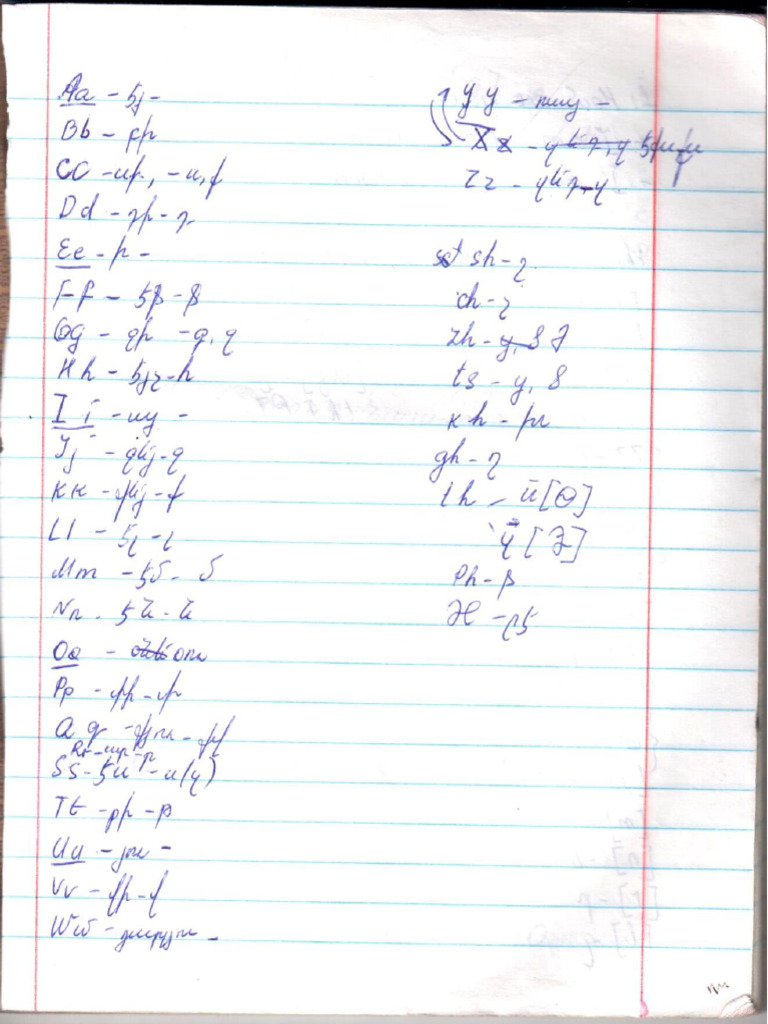 Aa - էյ -
Bb - բի
Cc - սի, - ս, ք
Dd - դի - դ
Ee - ի -
Ff - էֆ - ֆ
Gg - ջի - ջ, գ
Hh - էյչ - հ
Ii - այ -
Jj - ջեյ - ջ
Kk - քեյ - ք
Ll - էլ - լ
Mm - էմ - մ
Nn - էն - ն
Oo - օու
Pp - փի - փ
Qq - քյու - քվ
Rr - ար - ր
Ss - էս - ս(զ)
Tt - թի - թ
Uu - յու -
Vv - վի - վ
Ww - դաբլյու -
Yy - ուայ -
Xx - էքս
Zz - զեդ - զ
sh - շ
ch - չ
zh - ժ
ts - ց, ծ
kh - խ
gh - ղ
th - [Θ]
ph - ֆ